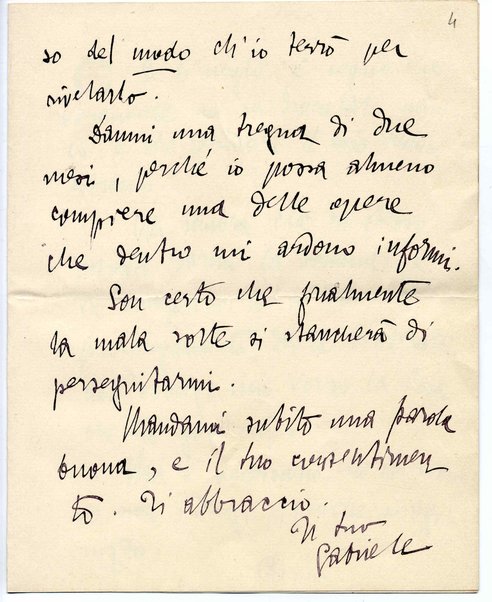 4
so del modo ch'io terrò per
rivelarlo.
Dammi una tregua di due
mesi, perché io possa almeno
compiere una delle opere
che dentro mi ardono informi.
Son certo che finalmente
la mala sorte si stancherà di
perseguitarmi.
Mandami subito una parola
buona, e il tuo consentimen
to. Ti abbraccio.
Il tuo
Gabriele